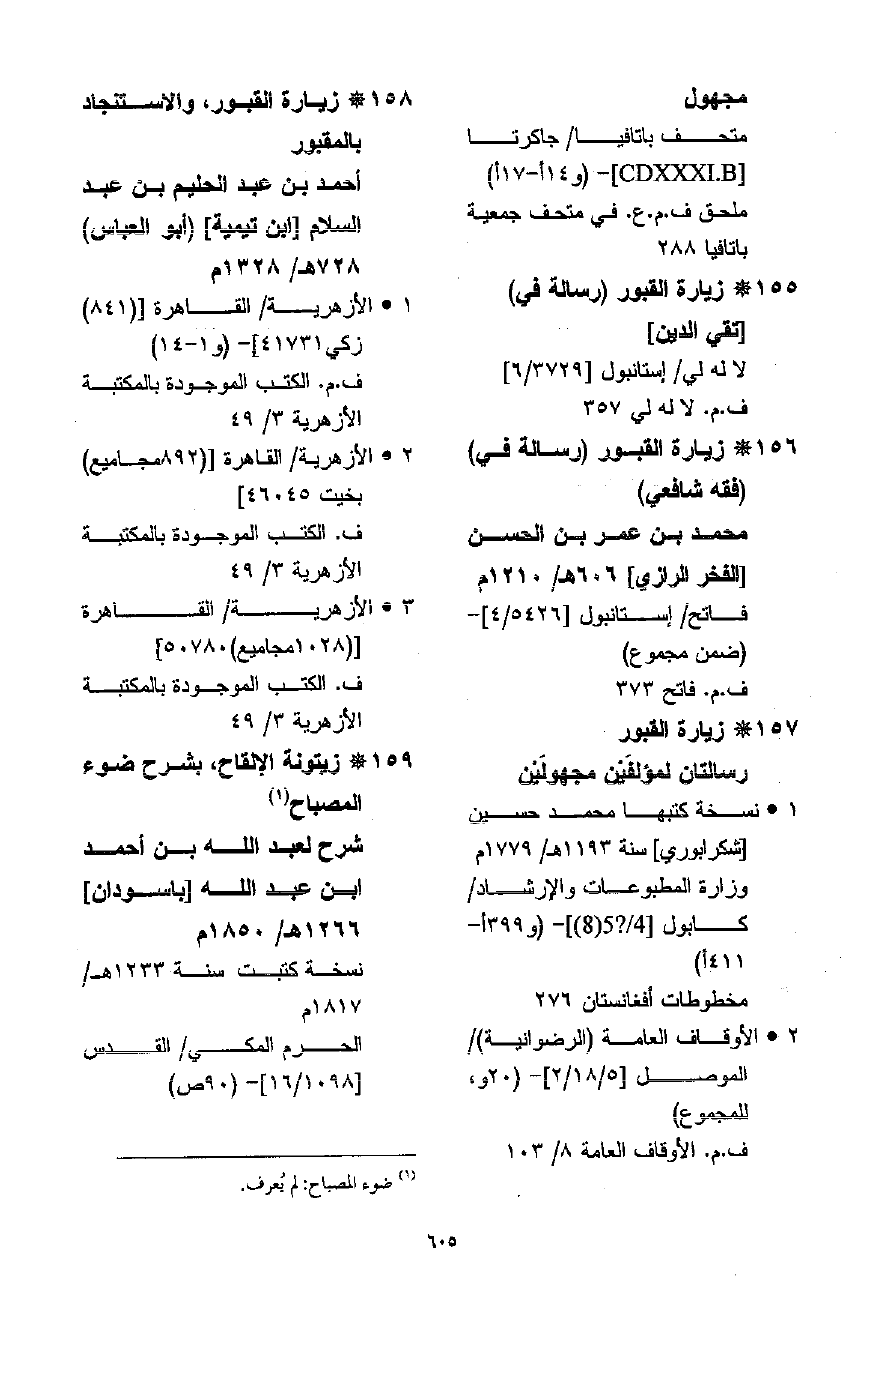 مجهول
متحف باتافيا/ جاكرتا
[CDXXXI.B]- (و١٤أ-١٧أ)
ملحق ف.م.ع. في متحف جمعية
باتافيا ٢٨٨
١٥٥ * زيارة القبور (رسالة في)
[تقي الدين]
لا له لي/ إستانبول [٦/٣٧٢٩]
ف.م. لا له لي ٣٥٧
١٥٦ * زيارة القبور (رسالة في)
(فقه شافعي)
محمد بن عمر بن الحسن
[الفخر الرازي] ٦٠٦هـ/ ١٢١٠م
فاتح/ إستانبول [٤/٥٤٢٦]-
(ضمن مجموع)
ف.م. فاتح ٣٧٣
١٥٧ * زيارة القبور
رسالتان لمؤلفَيْن مجهولَيْن
١ • نسخة كتبها محمد حسين
[شكرابوري] سنة ١١٩٣هـ/ ١٧٧٩م
وزارة المطبوعات والإرشاد/
كابول [5?/4(8)]- (و٣٩٩أ-
٤١١أ)
مخطوطات أفغانستان ٢٧٦
٢ • الأوقاف العامة (الرضوانية)/
الموصل [٢/١٨/٥]- (٢٠و،
للمجموع)
ف.م. الأوقاف العامة ٨/ ١٠٣
١٥٨ * زيارة القبور، والاستنجاد
بالمقبور
أحمد بن عبد الحليم بن عبد
السلام [ابن تيمية] (أبو العباس)
٧٢٨هـ/ ١٣٢٨م
١ • الأزهرية/ القاهرة [(٨٤١)
زكي٤١٧٣١]- (و١-١٤)
ف.م. الكتب الموجودة بالمكتبة
الأزهرية ٣/ ٤٩
٢ • الأزهرية/ القاهرة [(٨٩٢مجاميع)
بخيت ٤٦٠٤٥]
ف. الكتب الموجودة بالمكتبة
الأزهرية ٣/ ٤٩
٣ • الأزهرية/ القاهرة
[(١٠٢٨مجاميع)٥٠٧٨٠]
ف. الكتب الموجودة بالمكتبة
الأزهرية ٣/ ٤٩
١٥٩ * زيتونة الإلقاح، بشرح ضوء
المصباح(١)
شرح لعبد الله بن أحمد
ابن عبد الله [باسودان]
١٢٦٦هـ/ ١٨٥٠م
نسخة كتبت سنة ١٢٣٣هـ/
١٨١٧م
الحرم المكي/ القدس
[١٦/١٠٩٨]- (٩٠ص)
(١) ضوء المصباح: لم يُعرف.
٦٠٥